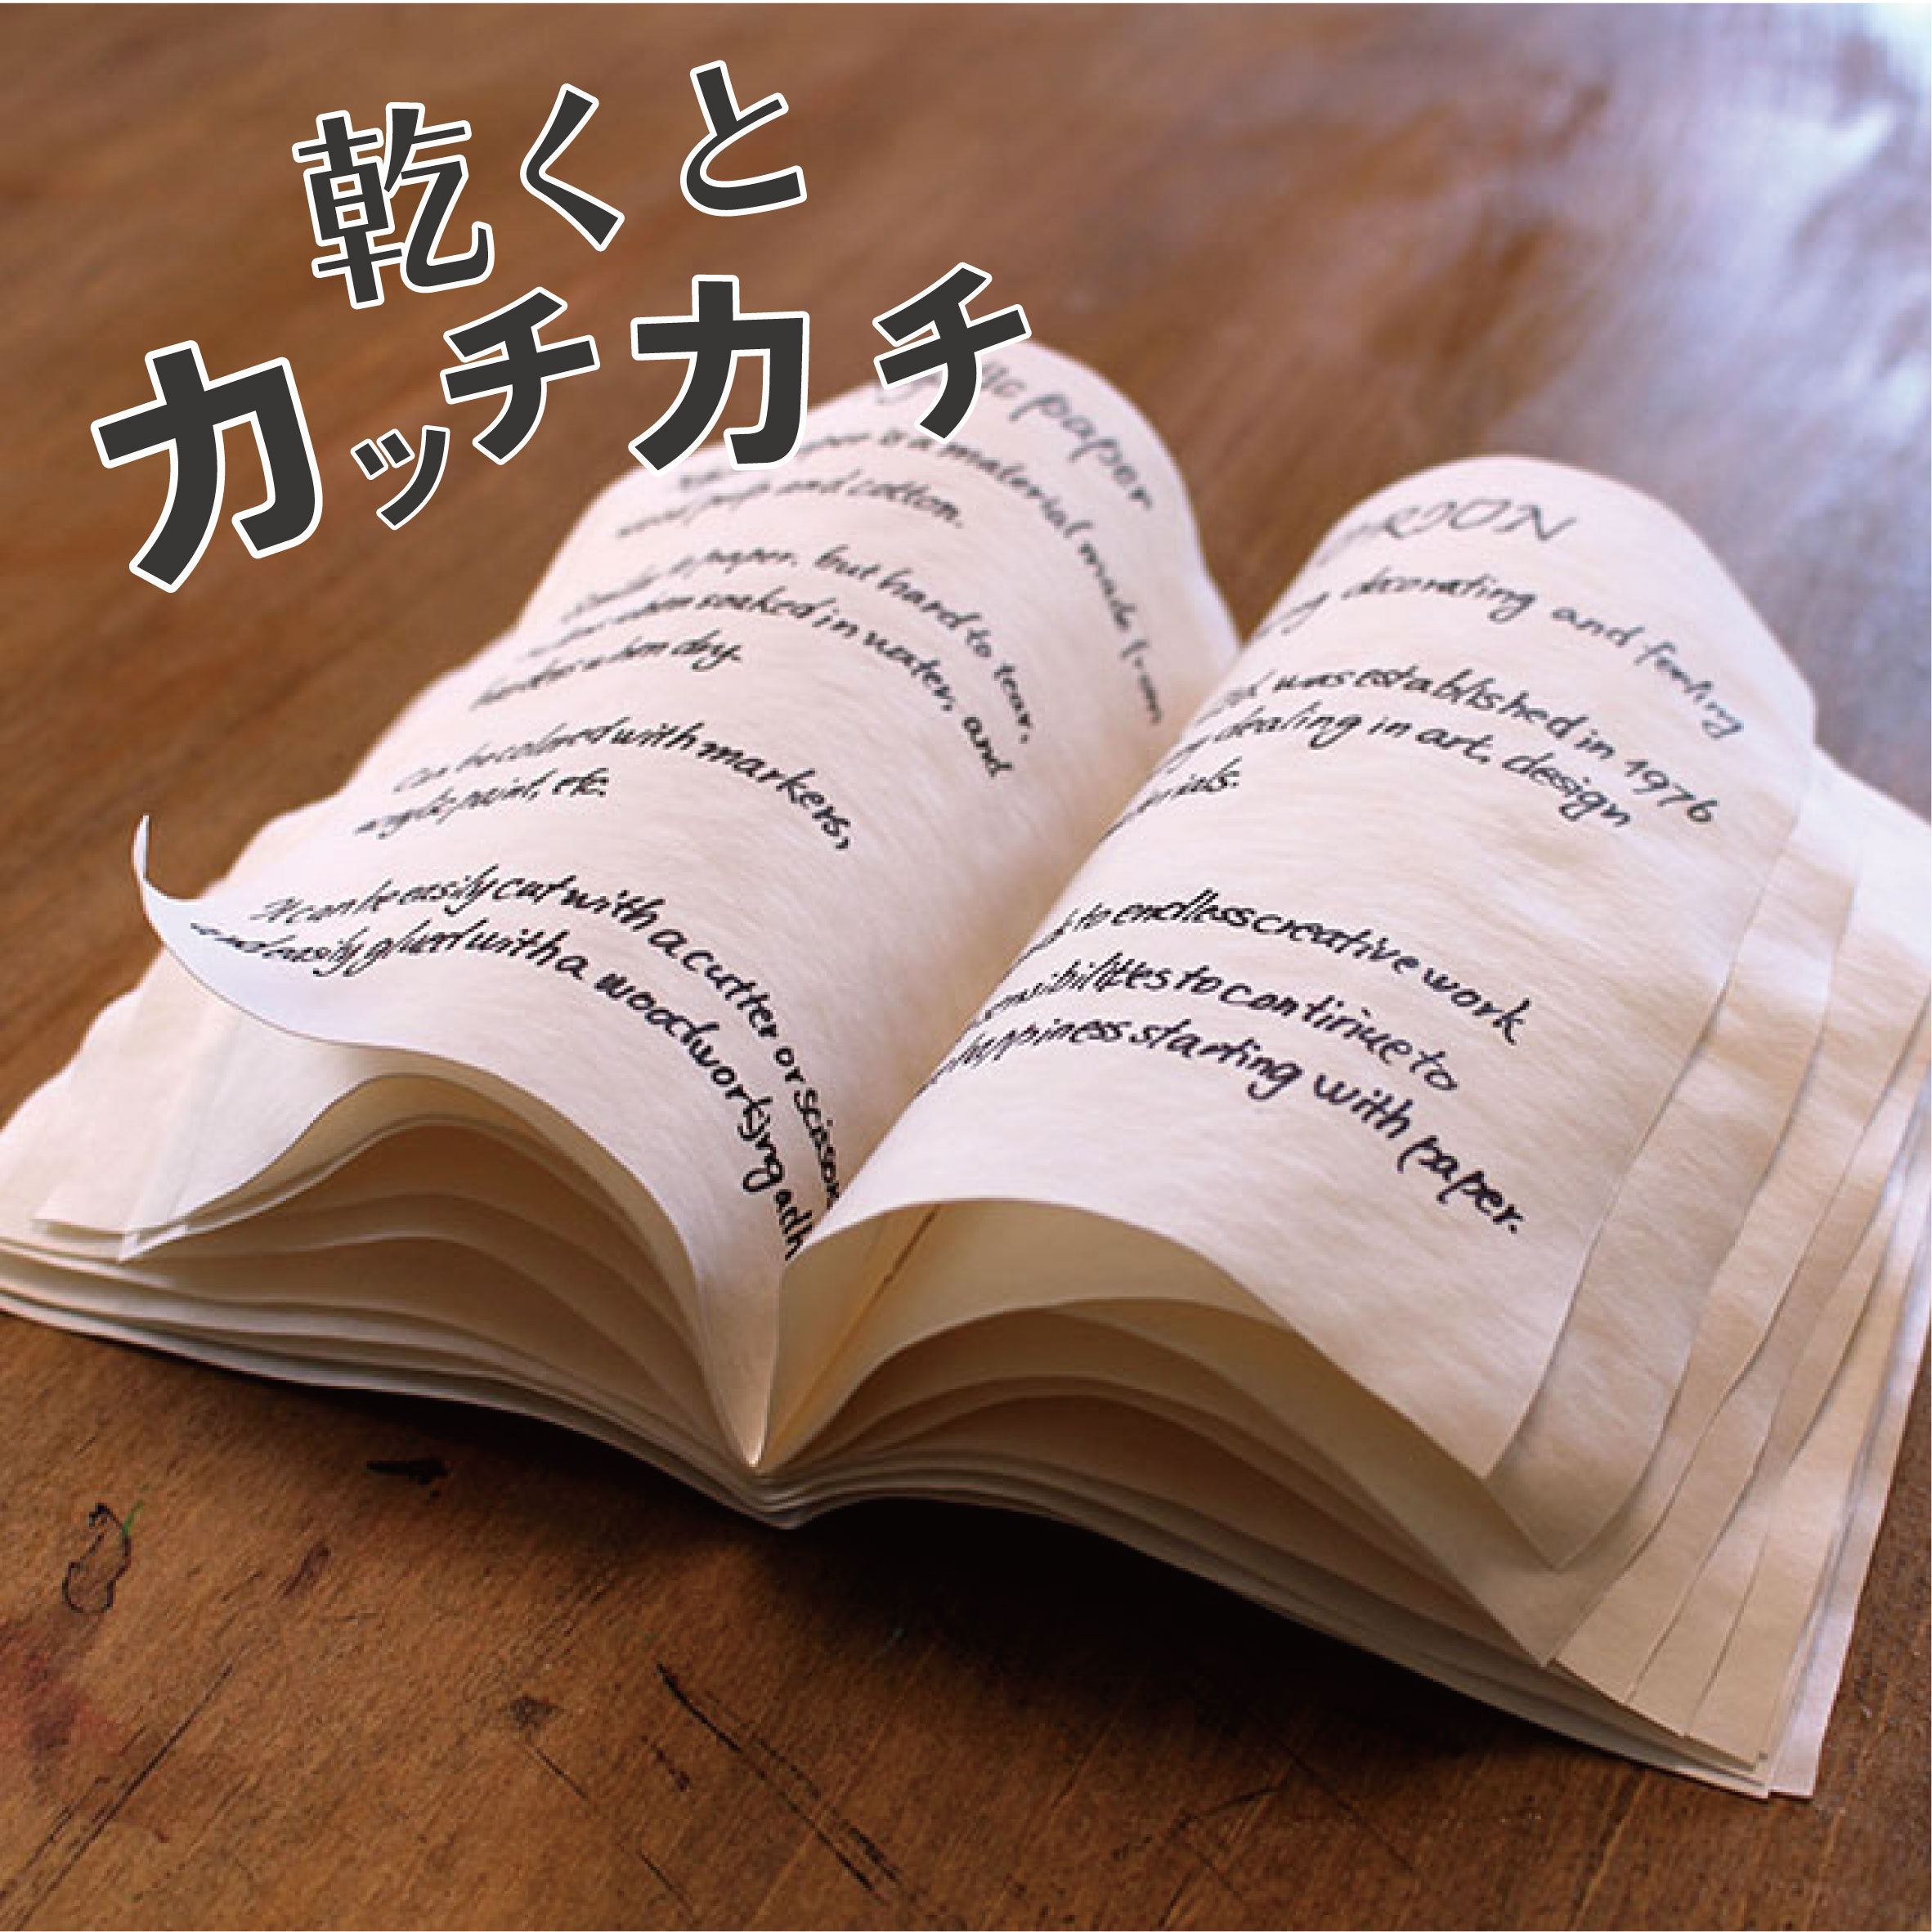 乾くと
カッチカチ
ic paper
is a material made from
and cotton.
paper. but hard to tear,
when soaked in water, and
when dry.
Can be colored with markers,
paint, etc.
It can be easily cut with a cutter or scissor
and easily glued with a woodworking adh
ORION
decorating and feeling
was established in 1976
dealing in art, design
to endless creative work
to contiriue to
happiness starting with paper.